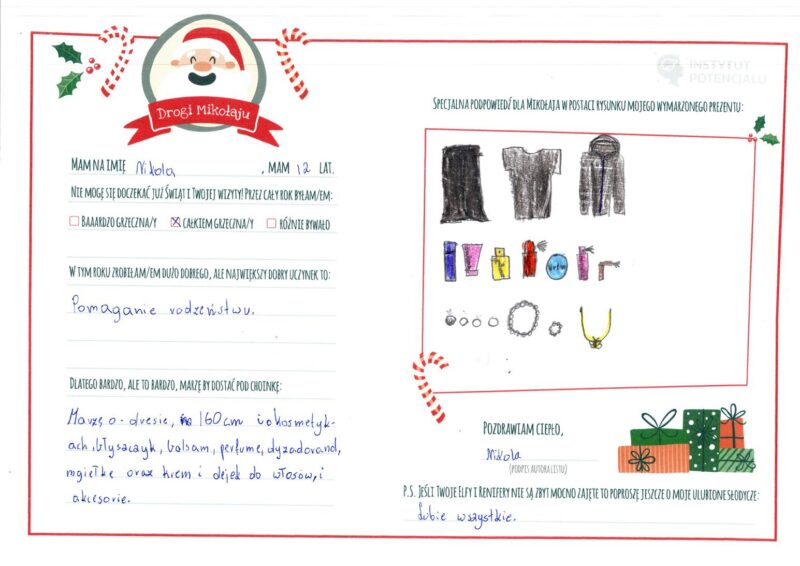 Drogi Mikołaju
INSTYTUT
POTENCJAŁU
Mam na imię Nikola, mam 12 lat.
Nie mogę się doczekać już Świąt i Twojej wizyty! Przez cały rok byłam/em:
Baaardzo grzeczna/y Całkiem grzeczna/y Różnie bywało
W tym roku zrobiłam/em dużo dobrego, ale największy dobry uczynek to:
Pomaganie rodzeństwu.
Dlatego bardzo, ale to bardzo, marzę by dostać pod choinkę:
Marzę o dresie, 160cm i o kosmetyk-
ach, błyszczyk, balsam, perfume, dyzadorand,
mgiełke oraz krem i olejek do włosów, i
akcesorie.
Specjalna podpowiedź dla Mikołaja w postaci rysunku mojego wymarzonego prezentu:
Pozdrawiam ciepło,
Nikola
(podpis autora listu)
P.S. Jeśli Twoje Elfy i Renifery nie są zbyt mocno zajęte to poproszę jeszcze o moje ulubione słodycze:
Lubie wszystkie.